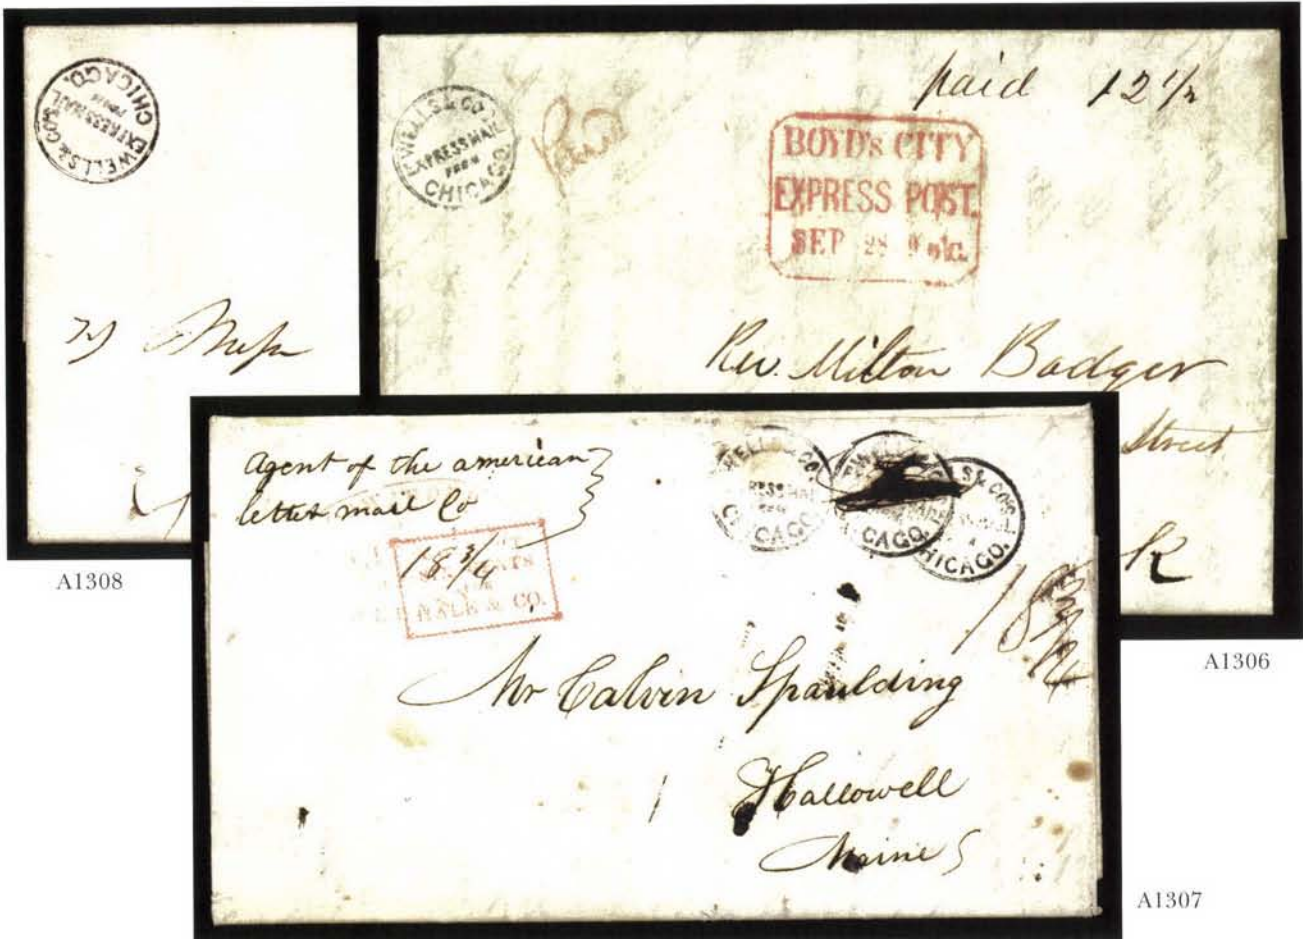 WELLS & CO'S
EXPRESS MAIL
FROM
CHICAGO.
A1308
WELLS & CO
EXPRESS MAIL
FROM
CHICAGO.
Paid
paid 12 1/2
BOYD'S CITY
EXPRESS POST.
SEP 28 9 o'c.
Rev. Milton Badger
Street
k
A1306
Agent of the american
letter mail Co
18 3/4
HALE & CO.
WELLS & CO.
CHICAGO.
CAGO.
LLS & CO'S
HICAGO.
18 3/4
Mr Calvin Spaulding
Hallowell
Maine
A1307